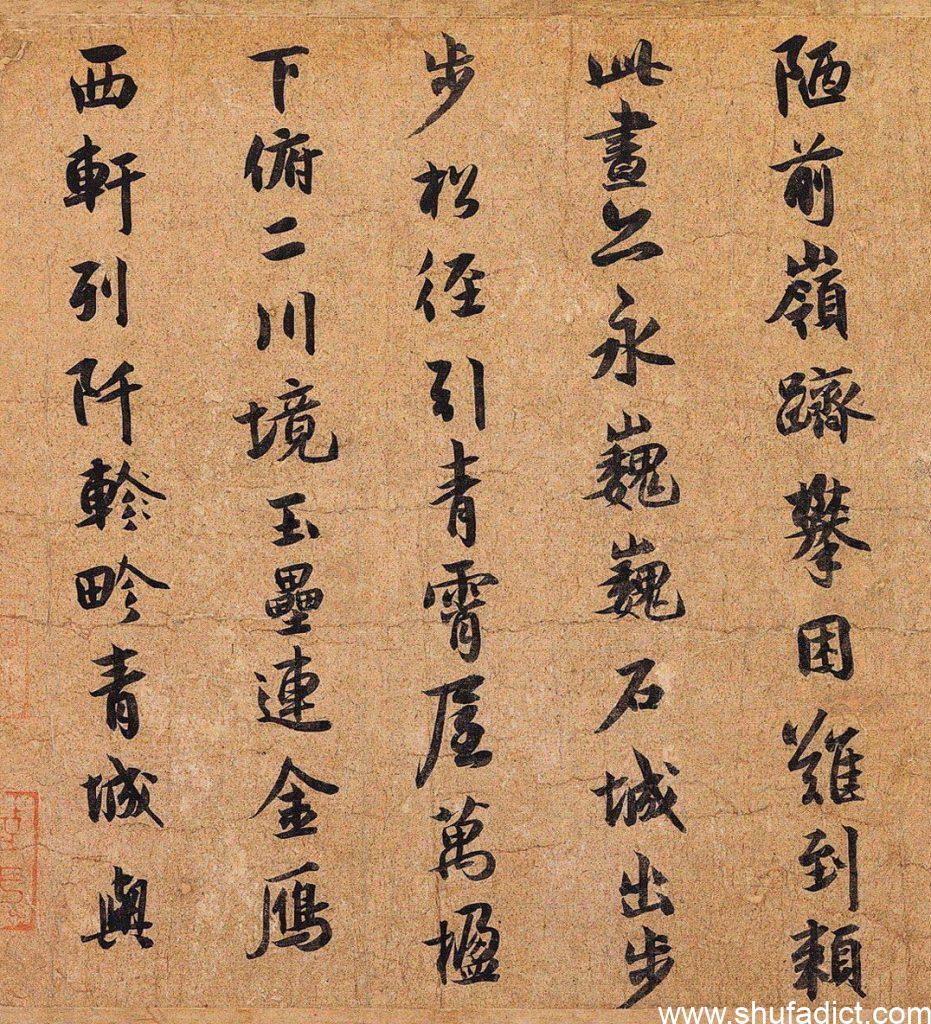 陋前嶺躋攀困難到賴
此晝永巍巍石城出步
步松徑引青霄屋萬楹
下俯二川境玉壘連金鴈
西軒列阡軫畛青城與
www.shufadict.com